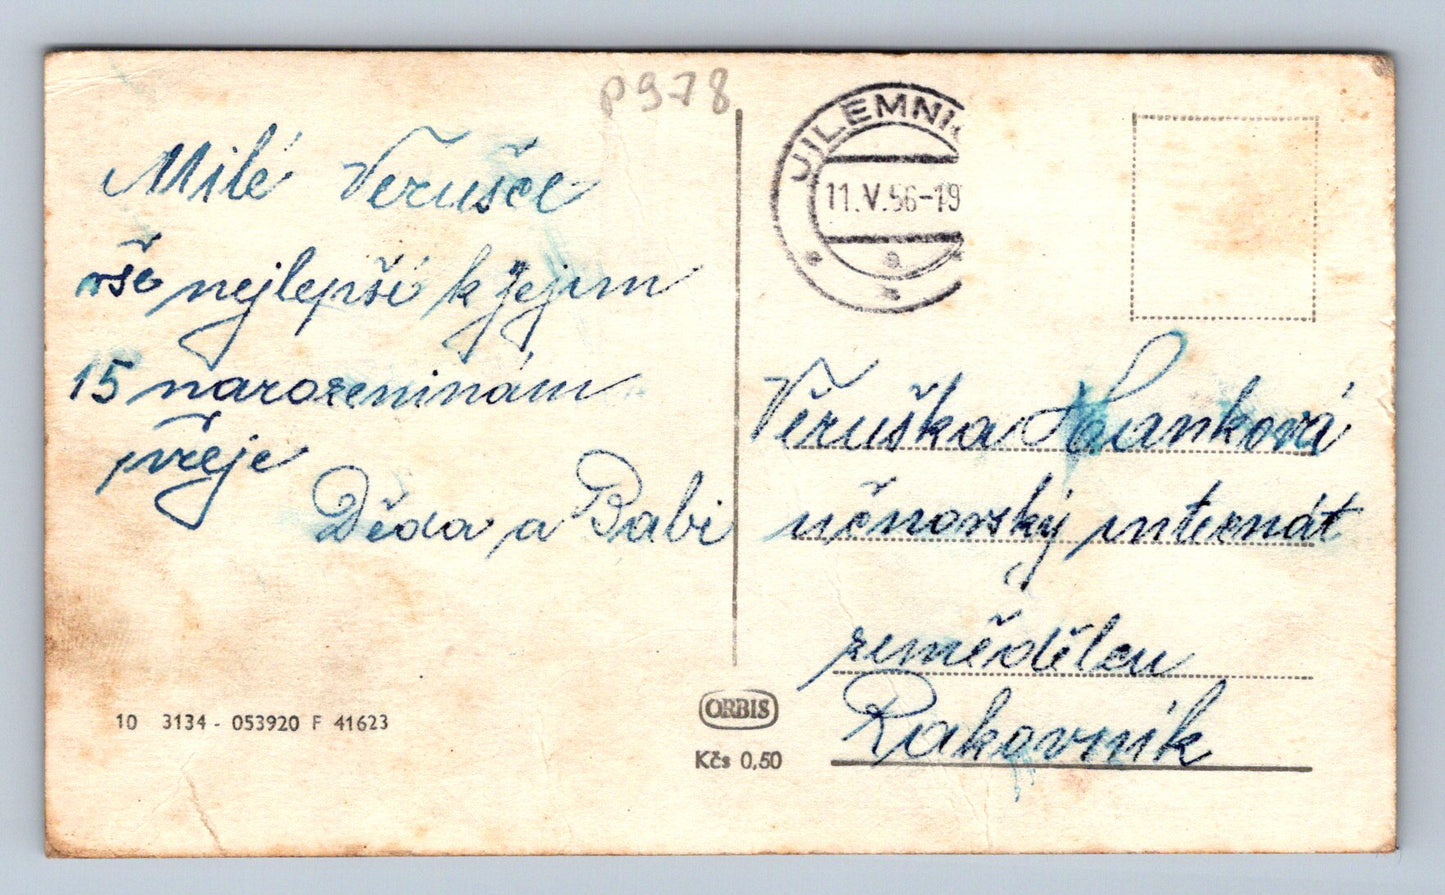 P978
Milé Verušce
vše nejlepší k jejim
15 narozeninám
přeje
Děda a Babi
10 3134 - 053920 F 41623
JILEMNI
11.V.56-19
ORBIS
Kčs 0,50
Věruška Hanková
učňovský internát
zemědělcu
Rakovník